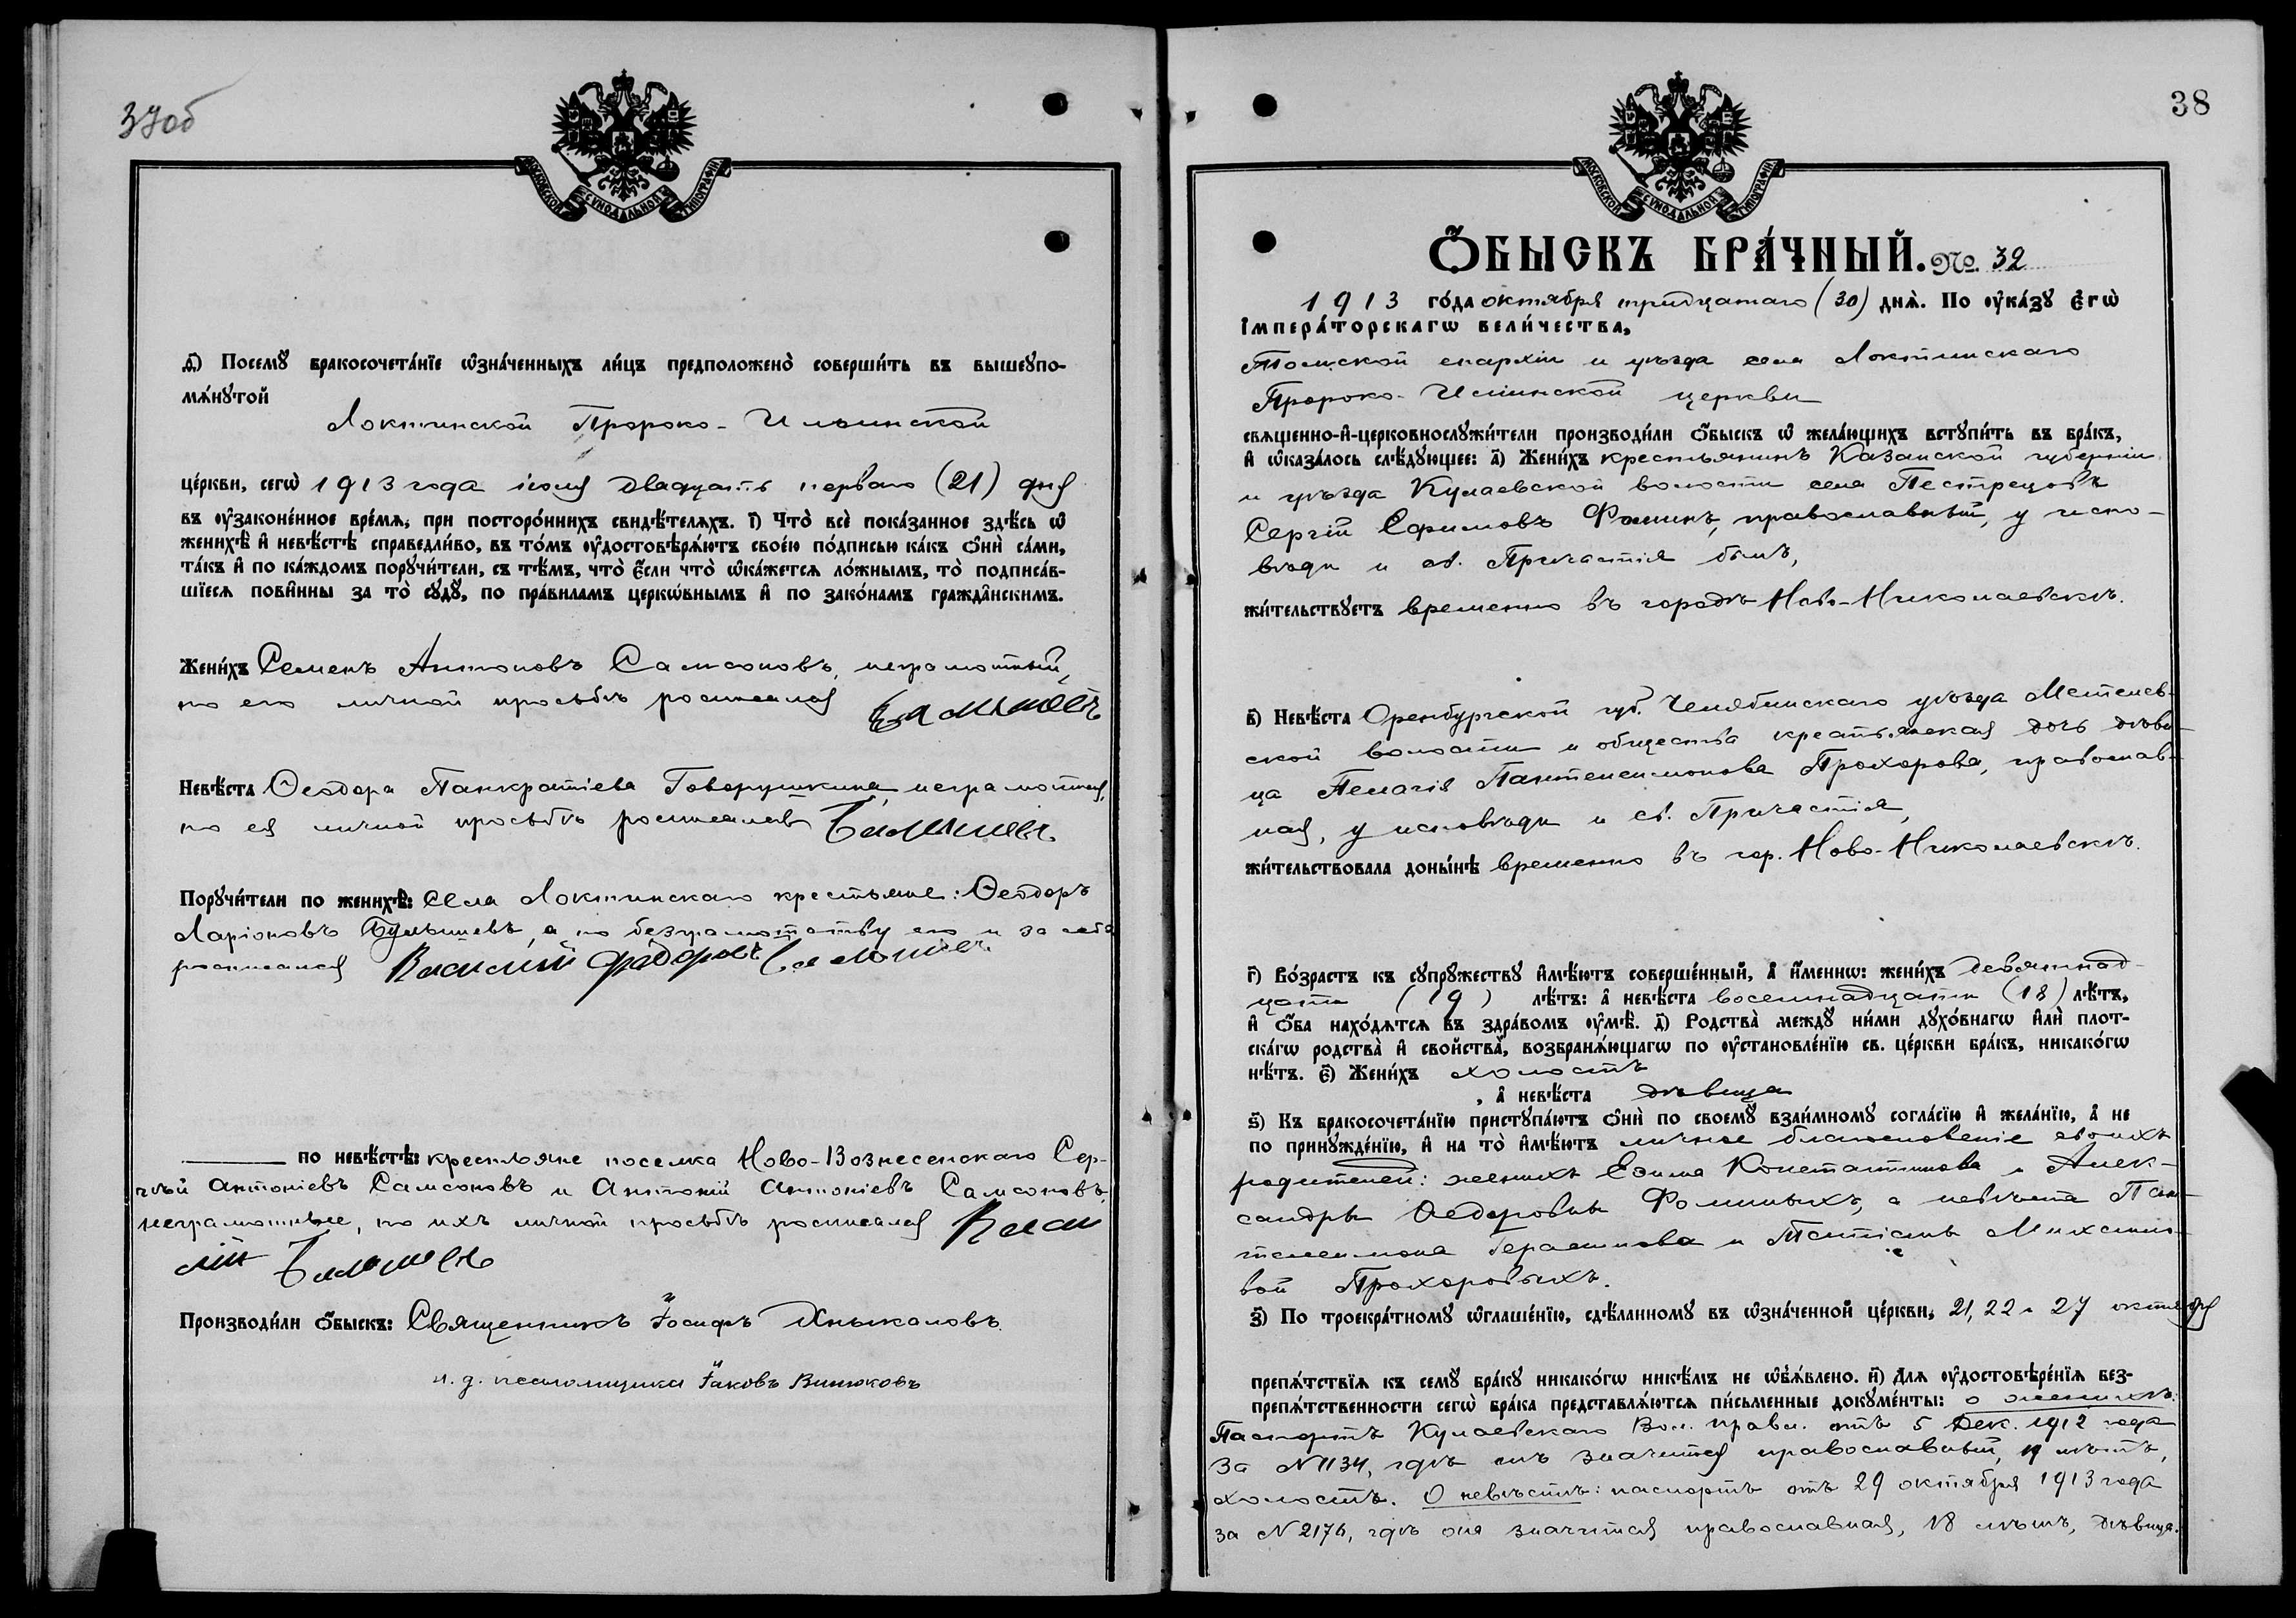 37об
МОСКОВСКОЙ СѴНОДАЛЬНОЙ ТИПОГРАФІИ
д҃) Посемꙋ̀ бракосочета́нїе ѡ҆зна́ченныхъ ли́цъ предположено̀ соверши́ть въ вышеꙋпо-
мѧ́нꙋтой
Локтинской Пророко-Ильинской
це́ркви, сегѡ̀ 1913 года іюля двадцать перваго (21) дня
въ ᲂу҆зако́ненное вре́мѧ, при посторо́ннихъ свидѣ́телѧхъ. і҃) Что̀ всѐ пока́занное здѣ́сь ѡ҆
женихѣ̀ и҆ невѣ́стѣ справедли́во, въ то́мъ ᲂу҆достовѣрѧ́ютъ свое́ю по́дписью ка́къ ѻ҆нѝ са́ми,
та́къ и҆ по ка́ждомъ порꙋчи́тели, съ тѣ́мъ, что̀ є҆́сли что̀ ѡ҆ка́жетсѧ ло́жнымъ, то̀ подписа́в-
шїесѧ пови́нны за то̀ сꙋдꙋ̀, по пра́виламъ церко́внымъ и҆ по зако́намъ гражда́нскимъ.
Жени́хъ Семенъ Антоновъ Самсоновъ, неграмотный,
по его личной просьбѣ росписался
Невѣ́ста Ѳеодора Панкратіева Говорушкина, неграмотная,
по ея личной просьбѣ росписался
Порꙋчи́тели по женихѣ̀: села Локтинскаго крестьяне: Ѳеодоръ
Ларіоновъ, а по безграмотству его и за себя
росписался Василій Федоровъ
по невѣ́стѣ: крестьяне поселка Ново-Вознесенскаго Сер-
гѣй Антоніевъ Самсоновъ и Антоній Антоніевъ Самсоновъ,
неграмотные, по ихъ личной просьбѣ росписался Васи
лій
Производи́ли ѻ҆́быскъ: Священникъ Іосифъ
и. д. псаломщика Іаковъ Винюковъ
38
МОСКОВСКОЙ СѴНОДАЛЬНОЙ ТИПОГРАФІИ
Ѻ҆́БЫСКЪ БРА́ЧНЫЙ. No. 32
1913 го́да октября тридцатаго (30) днѧ̀. По ᲂу҆ка́зꙋ Є҆гѡ̀
І҆мпера́торскагѡ вели́чества,
Томской епархіи и уѣзда села Локтинскаго
Пророко-Ильинской церкви
свѧще́нно-и҆-церковнослꙋжи́тели производи́ли ѻ҆́быскъ ѡ҆ жела́ющихъ встꙋпи́ть въ бра́къ,
и҆ ѡ҆каза́лось слѣ́дꙋющее: а҃) Жени́хъ крестьянинъ Казанской губерніи
и уѣзда Кулаевской волости села Пестрецовъ
Сергій Ефимовъ Фоминъ, православный, у испо-
вѣди и св. Причастія былъ,
жи́тельствꙋетъ временно въ городѣ Ново-Николаевскѣ.
в҃) Невѣ́ста Оренбургской губ. Челябинскаго уѣзда Метелев-
ской волости и общества крестьянская дочь дѣви-
ца Пелагія Пантелеимонова Прохорова, православ-
ная, у исповѣди и св. Причастія,
жи́тельствовала доны́нѣ временно въ гор. Ново-Николаевскѣ.
г҃) Во́зрастъ къ сꙋпрꙋ́жествꙋ и҆мѣ́ютъ соверше́нный, а҆ и҆́меннѡ: жени́хъ девятнад-
цати (19) лѣ́тъ: а҆ невѣ́ста восемнадцати (18) лѣ́тъ,
и҆ ѻ҆́ба нахо́дѧтсѧ въ здра́вомъ ᲂу҆мѣ̀. д҃) Родства̀ междꙋ̀ ни́ми дꙋхо́внагѡ и҆лѝ плот-
ска́гѡ родства̀ и҆ сво́йства, возбранѧ́ющагѡ по ᲂу҆становле́нїю св. це́ркви бра́къ, никако́гѡ
нѣ́тъ. є҃) Жени́хъ холостъ
, а҆ невѣ́ста дѣвица
ѕ҃) Къ бракосочета́нїю пристꙋпа́ютъ ѻ҆нѝ по своемꙋ̀ взаи́мномꙋ согла́сїю и҆ жела́нїю, а҆ не
по принꙋжде́нїю, и҆ на то̀ и҆мѣ́ютъ личное благословеніе своихъ
родителей: женихъ Ефима Константинова и Алек-
сандры Ѳедоровны Фоминыхъ, а невѣста Пан-
телеимона Герасимова и Татіаны Михаило-
вой Прохоровыхъ.
з҃) По троекра́тномꙋ ѡ҆глаше́нїю, сдѣ́ланномꙋ въ ѡ҆зна́ченной це́ркви, 21, 22 и 27 октября
препѧ́тствїѧ къ семꙋ̀ бра́кꙋ никако́гѡ никѣ́мъ не ѡ҆б̾ѧ́влено. и҃) Длѧ ᲂу҆достовѣре́нїѧ без-
препѧ́тственности сегѡ̀ бра́ка представлѧ́ютсѧ пи́сьменные докꙋме́нты: о женихѣ:
Паспортъ Кулаевскаго Вол. правл. отъ 5 Дек. 1912 года
за N 1134, гдѣ онъ значится православный, 19 лѣтъ,
холостъ. О невѣстѣ: паспортъ отъ 29 октября 1913 года
за N 2176, гдѣ она значится православная, 18 лѣтъ, дѣвица.